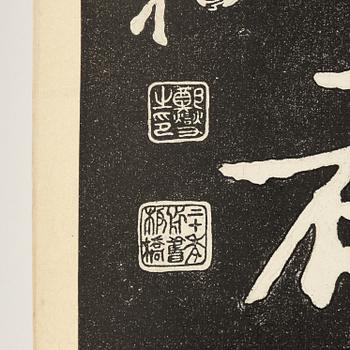 鄭燮
之印
二十年
前舊
板橋